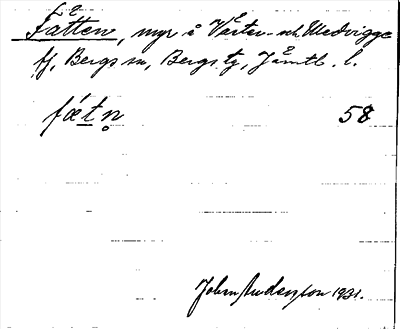 Fatten, myr å Väster- och Medvigge
fj, Bergs sn, Bergs tg, Jämtl. l.
fǽtn̥ 58
John Anderson 1931.